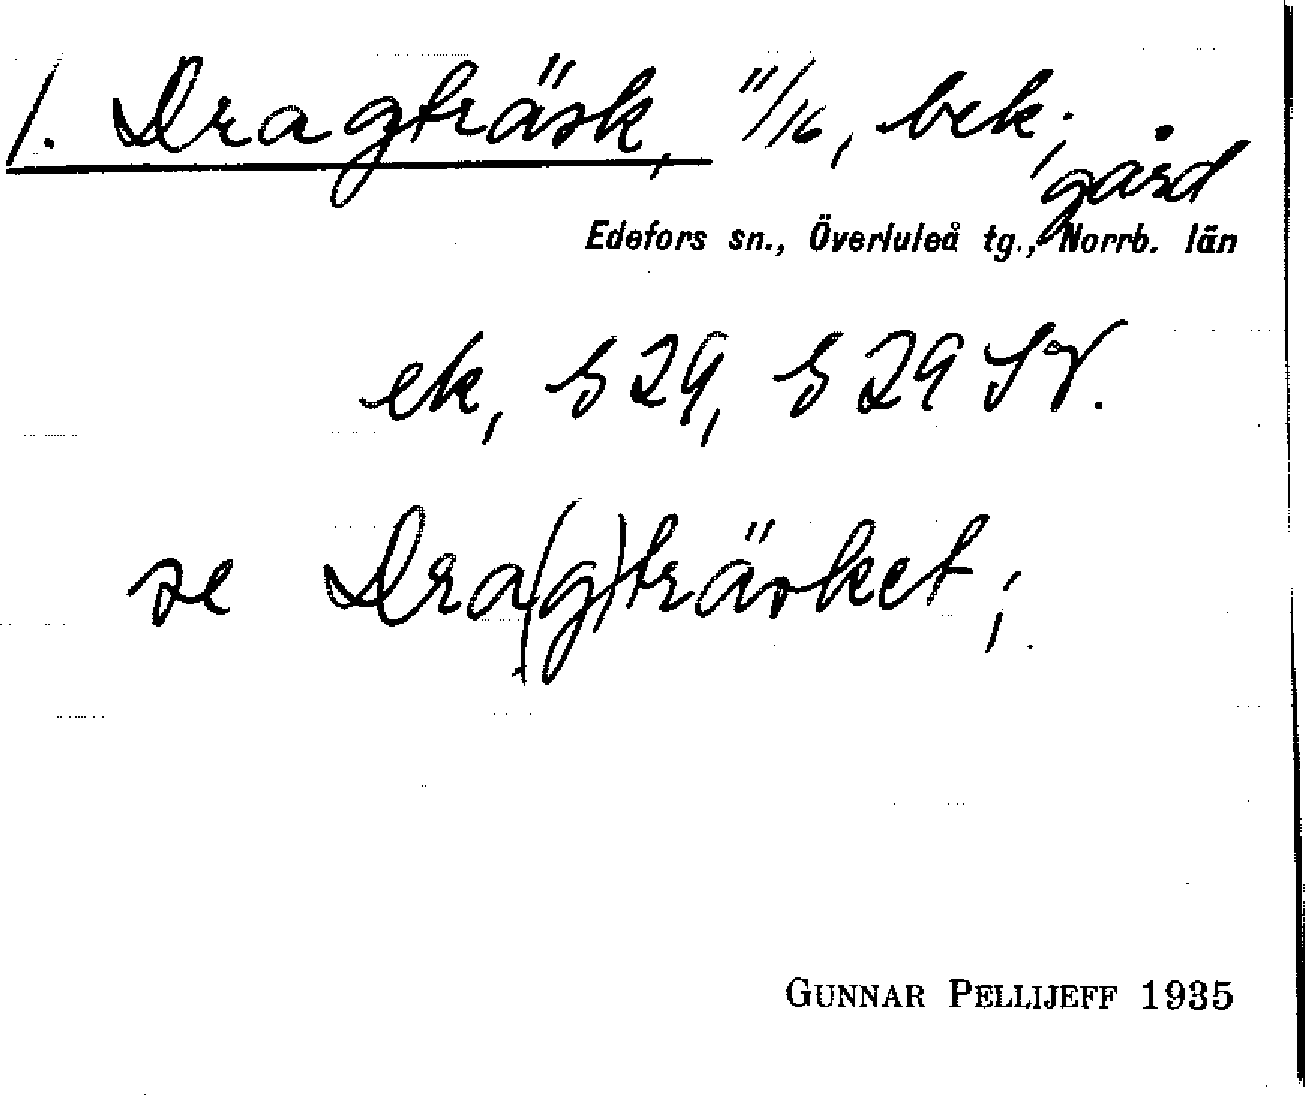 1. Dragträsk, 11/16, bek.,
gård
Edefors sn., Överluleå tg., Norrb. län
ek, § 29, § 29 SV.
se Dra(g)träsket;
GUNNAR PELLIJEFF 1935